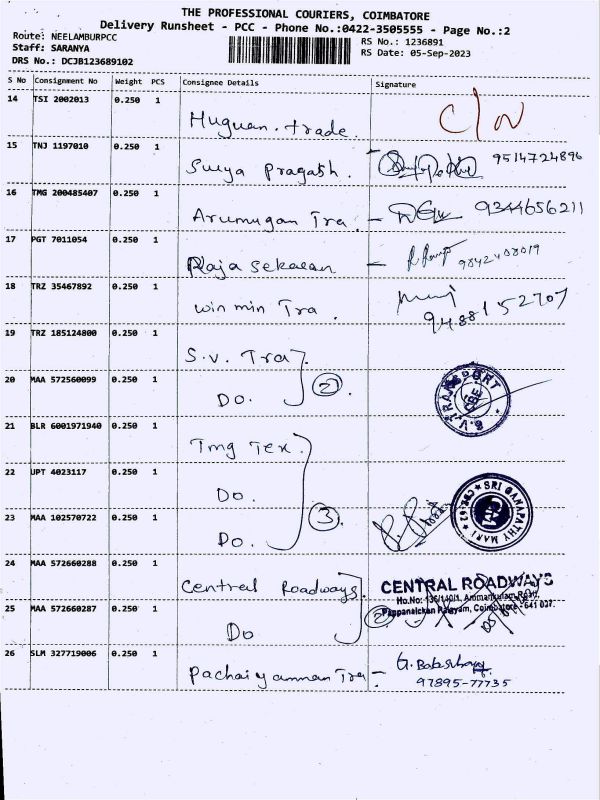 THE PROFESSIONAL COURIERS, COIMBATORE
Delivery Runsheet - PCC - Phone No.:0422-3505555 - Page No.:2
Route: NEELAMBURPCC
Staff: SARANYA
DRS No.: DCJB123689102
RS No.: 1236891
RS Date: 05-Sep-2023
S No Consignment No Weight PCS Consignee Details Signature
14 TSI 2002013 0.250 1 Huguan. trade. C/N
15 TNJ 1197010 0.250 1 Surya Pragash. 9514724896
16 TMG 200485407 0.250 1 Arumugan Tra. - 9344656211
17 PGT 7011054 0.250 1 Raja sekaran -
18 TRZ 35467892 0.250 1 win min Tra. 9488152707
19 TRZ 185124800 0.250 1 S.v. Tra.
20 MAA 572560099 0.250 1 Do. 2 S.V. TRANSPORT CBE
21 BLR 6001971940 0.250 1 Tmg Tex.
22 UPT 4023117 0.250 1 Do.
23 MAA 102570722 0.250 1 Do. 3. SRI GANAPATHY MARI CBE-62
24 MAA 572660288 0.250 1 Central Roadways. CENTRAL ROADWAYS
Ammankulam Road,
Pappanaickan Palayam, Coimbatore - 641 037.
25 MAA 572660287 0.250 1 Do 2
26 SLM 327719006 0.250 1 Pachaiyamman Tra - 97895-77735